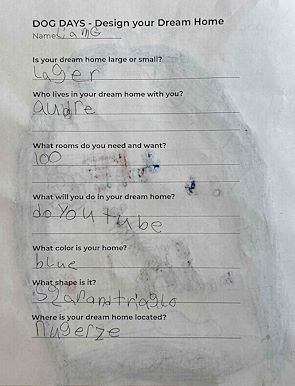 DOG DAYS - Design your Dream Home
Name Liamg
Is your dream home large or small?
Lager
Who lives in your dream home with you?
audre
What rooms do you need and want?
100
What will you do in your dream home?
do YouTube
What color is your home?
blue
What shape is it?
Where is your dream home located?